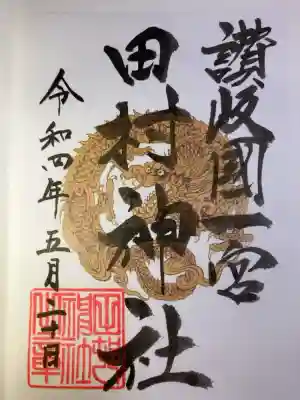 讃岐國一宮
田村神社
令和四年五月二十日